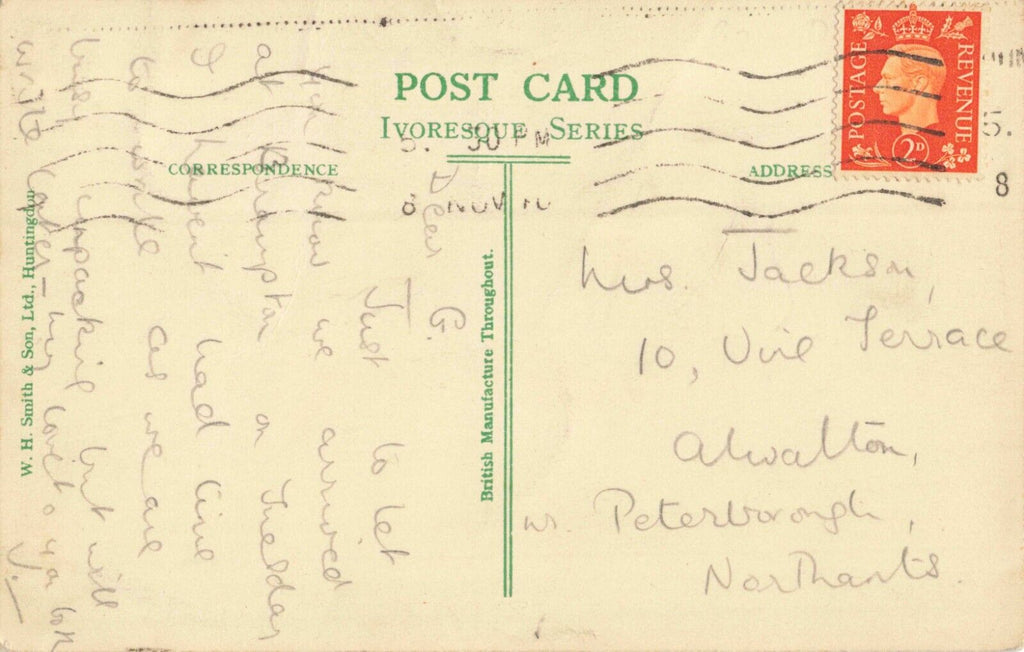 POST CARD
IVORESQUE SERIES
CORRESPONDENCE
ADDRESS
POSTAGE
REVENUE
2D
5. 30 PM
8 NOV
5.
8
Dear G.
Just to let
you know we arrived
at on Tuesday
I haven't had time
to write as we are
busy unpacking but will
write later – my love to
y. –
Mrs. Jackson,
10, Vine Terrace
Alwalton,
nr. Peterborough,
Northants.
British Manufacture Throughout.
W. H. Smith & Son, Ltd., Huntingdon